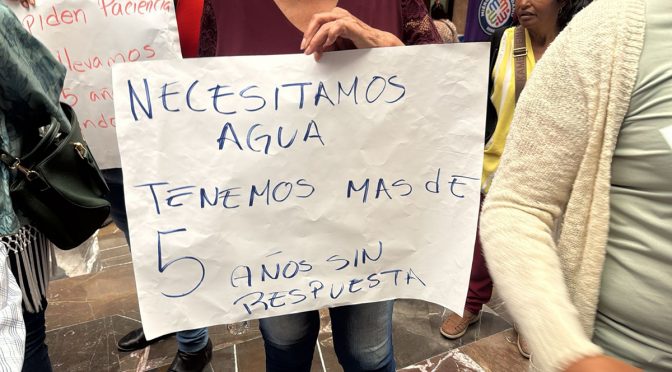 piden Paciencia
llevamos
5 añ
NECESITAMOS
AGUA
TENEMOS MAS dE
5 AÑOS SIN
RESPUESTA